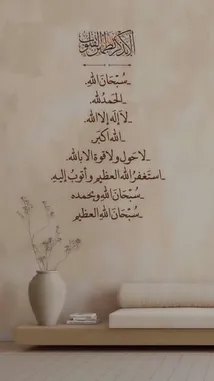 ألا بذكر الله تطمئن القلوب
_سُبْحَانَ اللهِ.
_الحَمدُلله.
_لا إله إلا الله.
_الله اكبَر.
_لاحَول ولا قوة الا بالله.
_استَغفرُ الله العظيم وأتوبُ إليه.
_سُبْحَانَ اللهِ وبحمده
_سُبْحَانَ اللهِ العظيم